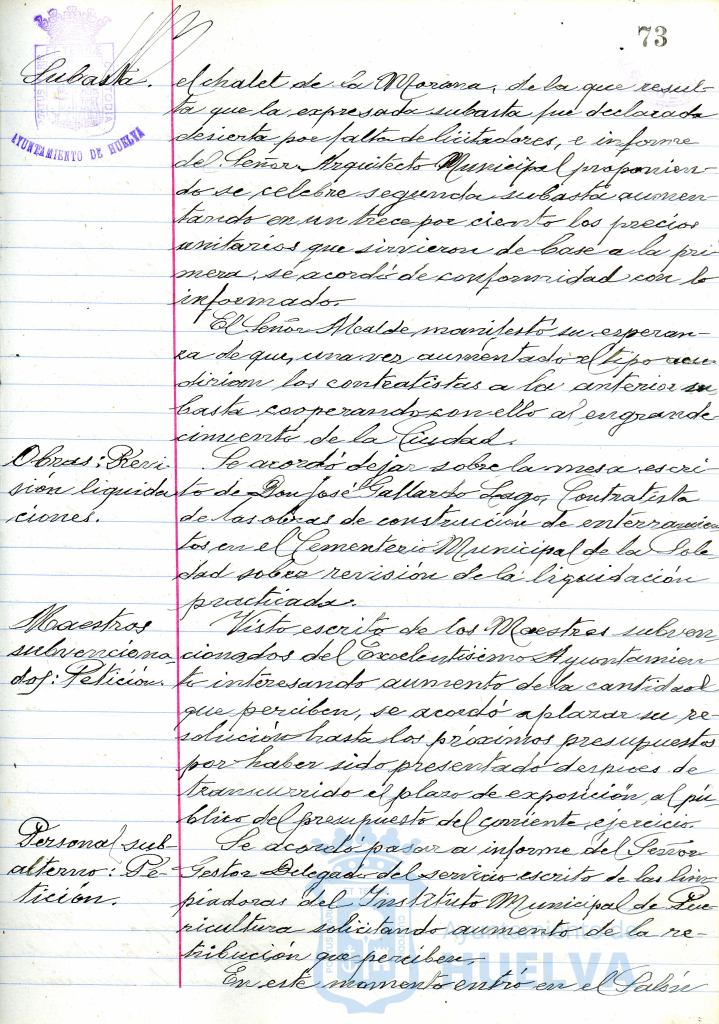 73
AYUNTAMIENTO DE HUELVA
Subasta.
el chalet de La Morana, de la que resul-
ta que la expresada subasta fue declarada
desierta por falta de licitadores, e informe
del Señor Arquitecto Municipal proponien-
do se celebre segunda subasta aumen-
tando en un trece por ciento los precios
unitarios que sirvieron de base a la pri-
mera, se acordó de conformidad con lo
informado.
El Señor Alcalde manifestó su esperan-
za de que, una vez aumentado el tipo acu-
dirian los contratistas a la anterior su-
basta cooperando con ello al engrande-
cimiento de la Ciudad.
Obras: Revi-
sión liquida
ciones.
Se acordó dejar sobre la mesa escri-
to de Don José Gallardo Lago, Contratista
de las obras de construcción de enterramien-
tos en el Cementerio Municipal de la Sole-
dad sobre revisión de la liquidación
practicada.
Maestros
subvenciona-
dos: Petición.
Visto escrito de los Maestros subven-
cionados del Excelentisimo Ayuntamien-
to interesando aumento de la cantidad
que perciben, se acordó aplazar su re-
solución hasta los próximos presupuestos
por haber sido presentado despues de
transcurrido el plazo de exposición al pú-
blico del presupuesto del corriente ejercicio.
Personal sub-
alterno: Pe-
tición.
Se acordó pasar a informe del Señor
Gestor Delegado del servicio escrito de las lim-
piadoras del Instituto Municipal de Pue-
ricultura solicitando aumento de la re-
tribución que perciben.
En este momento entró en el Salón
Ayuntamiento de
HUELVA